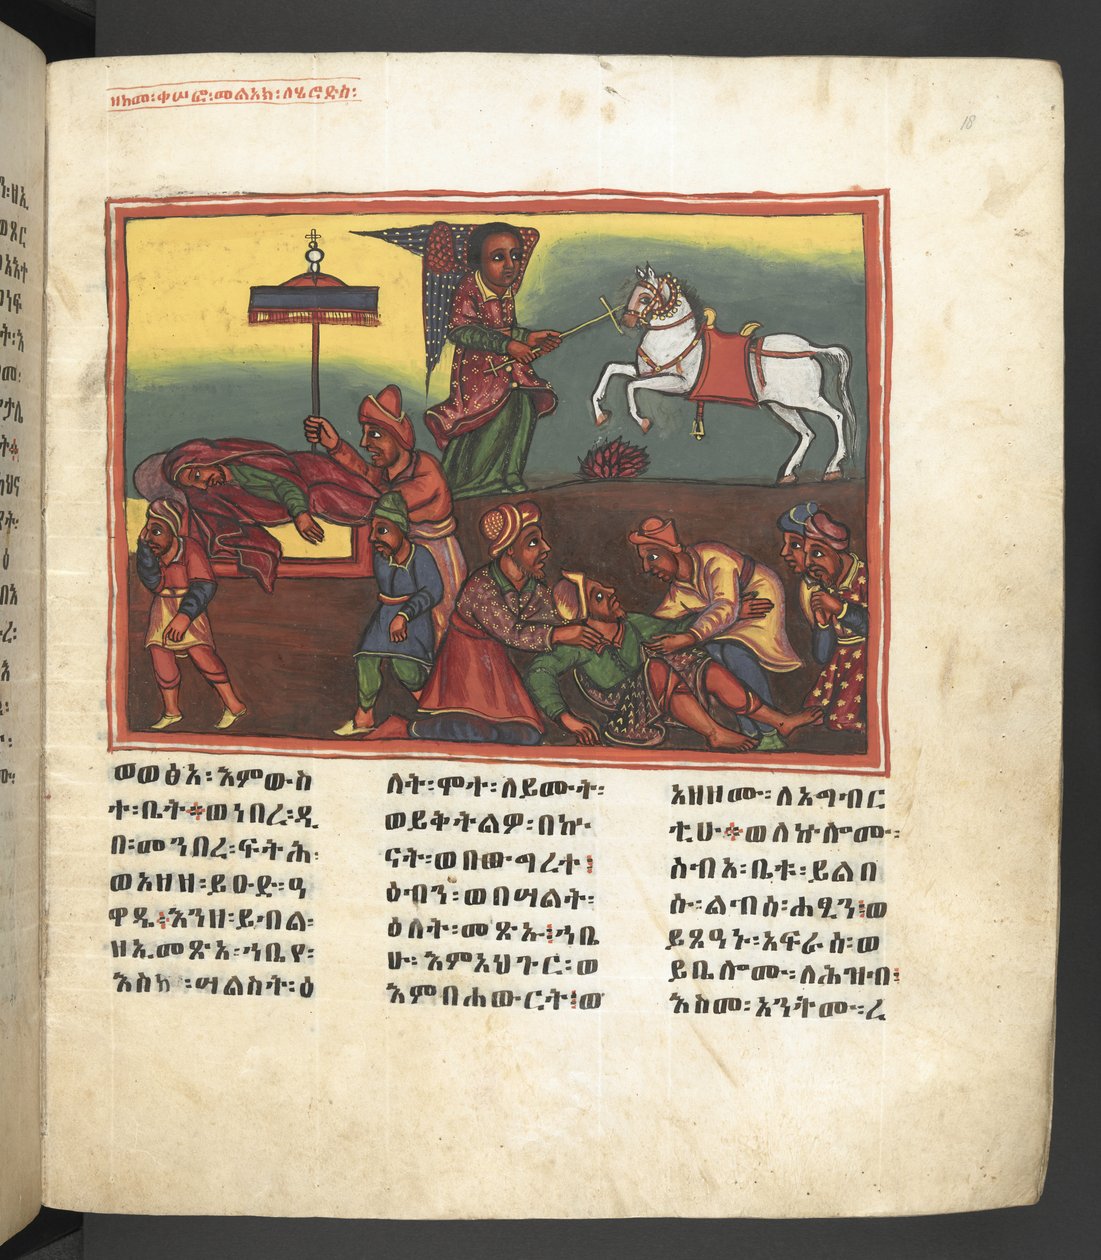 ዘከመ፡ቀሠፎ፡መልአክ፡ለሄሮድስ፡
18
ወወፅአ፡እምውስ
ተ፡ቤት፨ወነበረ፡ዲ
በ፡መንበረ፡ፍትሕ፡
ወአዘዘ፡ይዑድ፡ዓ
ዋዲ፤እንዘ፡ይብል፡
ዘኢመጽአ፡ኀቤየ፡
እስከ፡ሣልስት፡ዕ
ለት፡ሞተ፡ለይሙት፡
ወይቅትልዎ፡በኵ
ናት፡ወበውግረተ፤
ዕብን፡ወበሣልት፡
ዕለት፡መጽኡ፤ኀቤ
ሁ፡እምአህጉር፡ወ
እምበሐውርት፤ወ
አዘዞሙ፡ለአግብር
ቲሁ፨ወለኵሎሙ፡
ሰብአ፡ቤቱ፡ይልበ
ሱ፡ልብሰ፡ሐፂን፤ወ
ይጸዓኑ፡አፍራሰ፡ወ
ይቤሎሙ፡ለሕዝብ፤
እስመ፡አንትሙ፡ረ